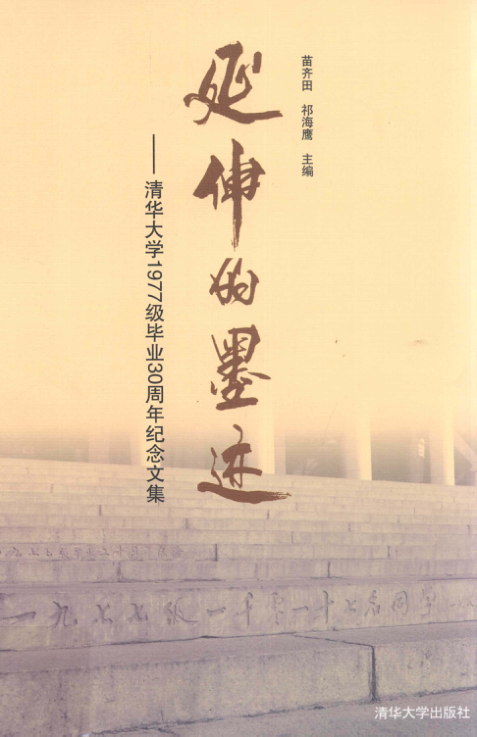 苗齐田 祁海鹰 主编
延伸的墨迹
——清华大学1977级毕业30周年纪念文集
一九七七级一千零一十七名同学
清华大学出版社